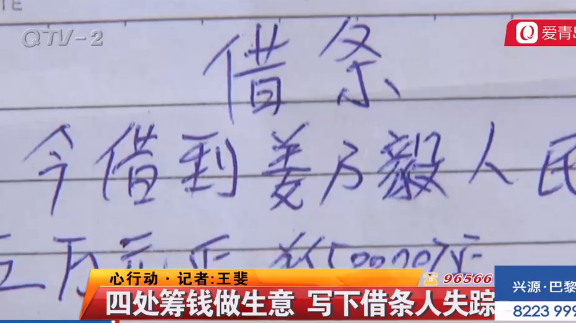 QTV-2
爱青岛
借条
今借到姜乃毅人民
心行动·记者:王斐
96566
四处筹钱做生意 写下借条人失踪
兴源·巴黎
8223 999